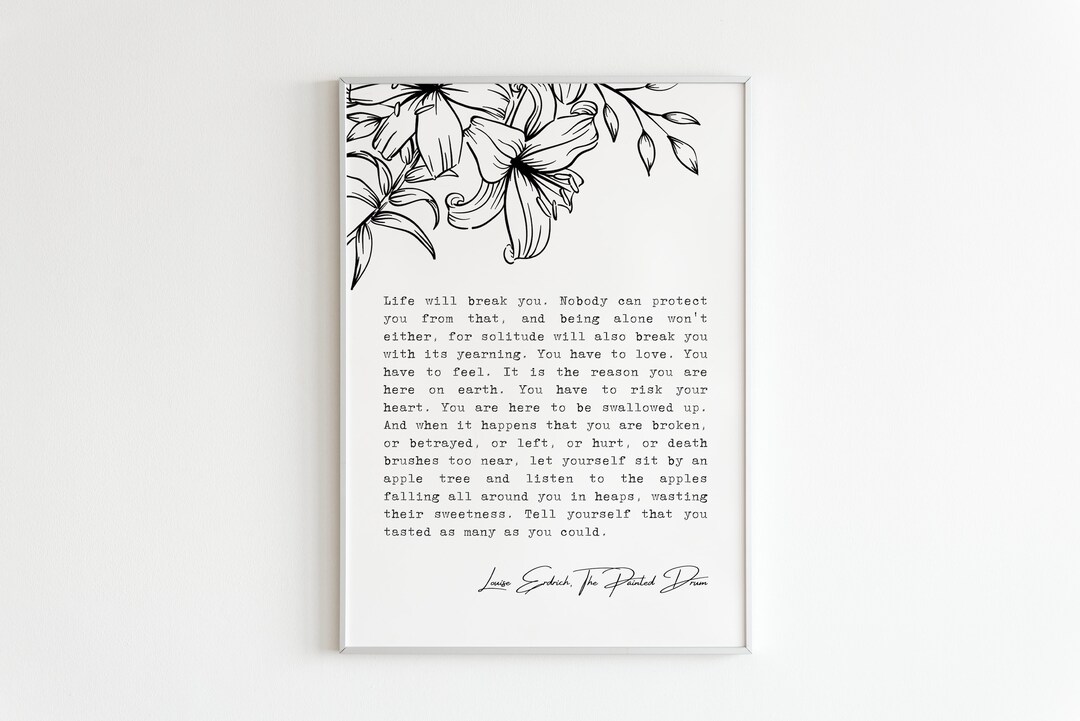 Life will break you. Nobody can protect
you from that, and being alone won't
either, for solitude will also break you
with its yearning. You have to love. You
have to feel. It is the reason you are
here on earth. You have to risk your
heart. You are here to be swallowed up.
And when it happens that you are broken,
or betrayed, or left, or hurt, or death
brushes too near, let yourself sit by an
apple tree and listen to the apples
falling all around you in heaps, wasting
their sweetness. Tell yourself that you
tasted as many as you could.
Louise Erdrich, The Painted Drum